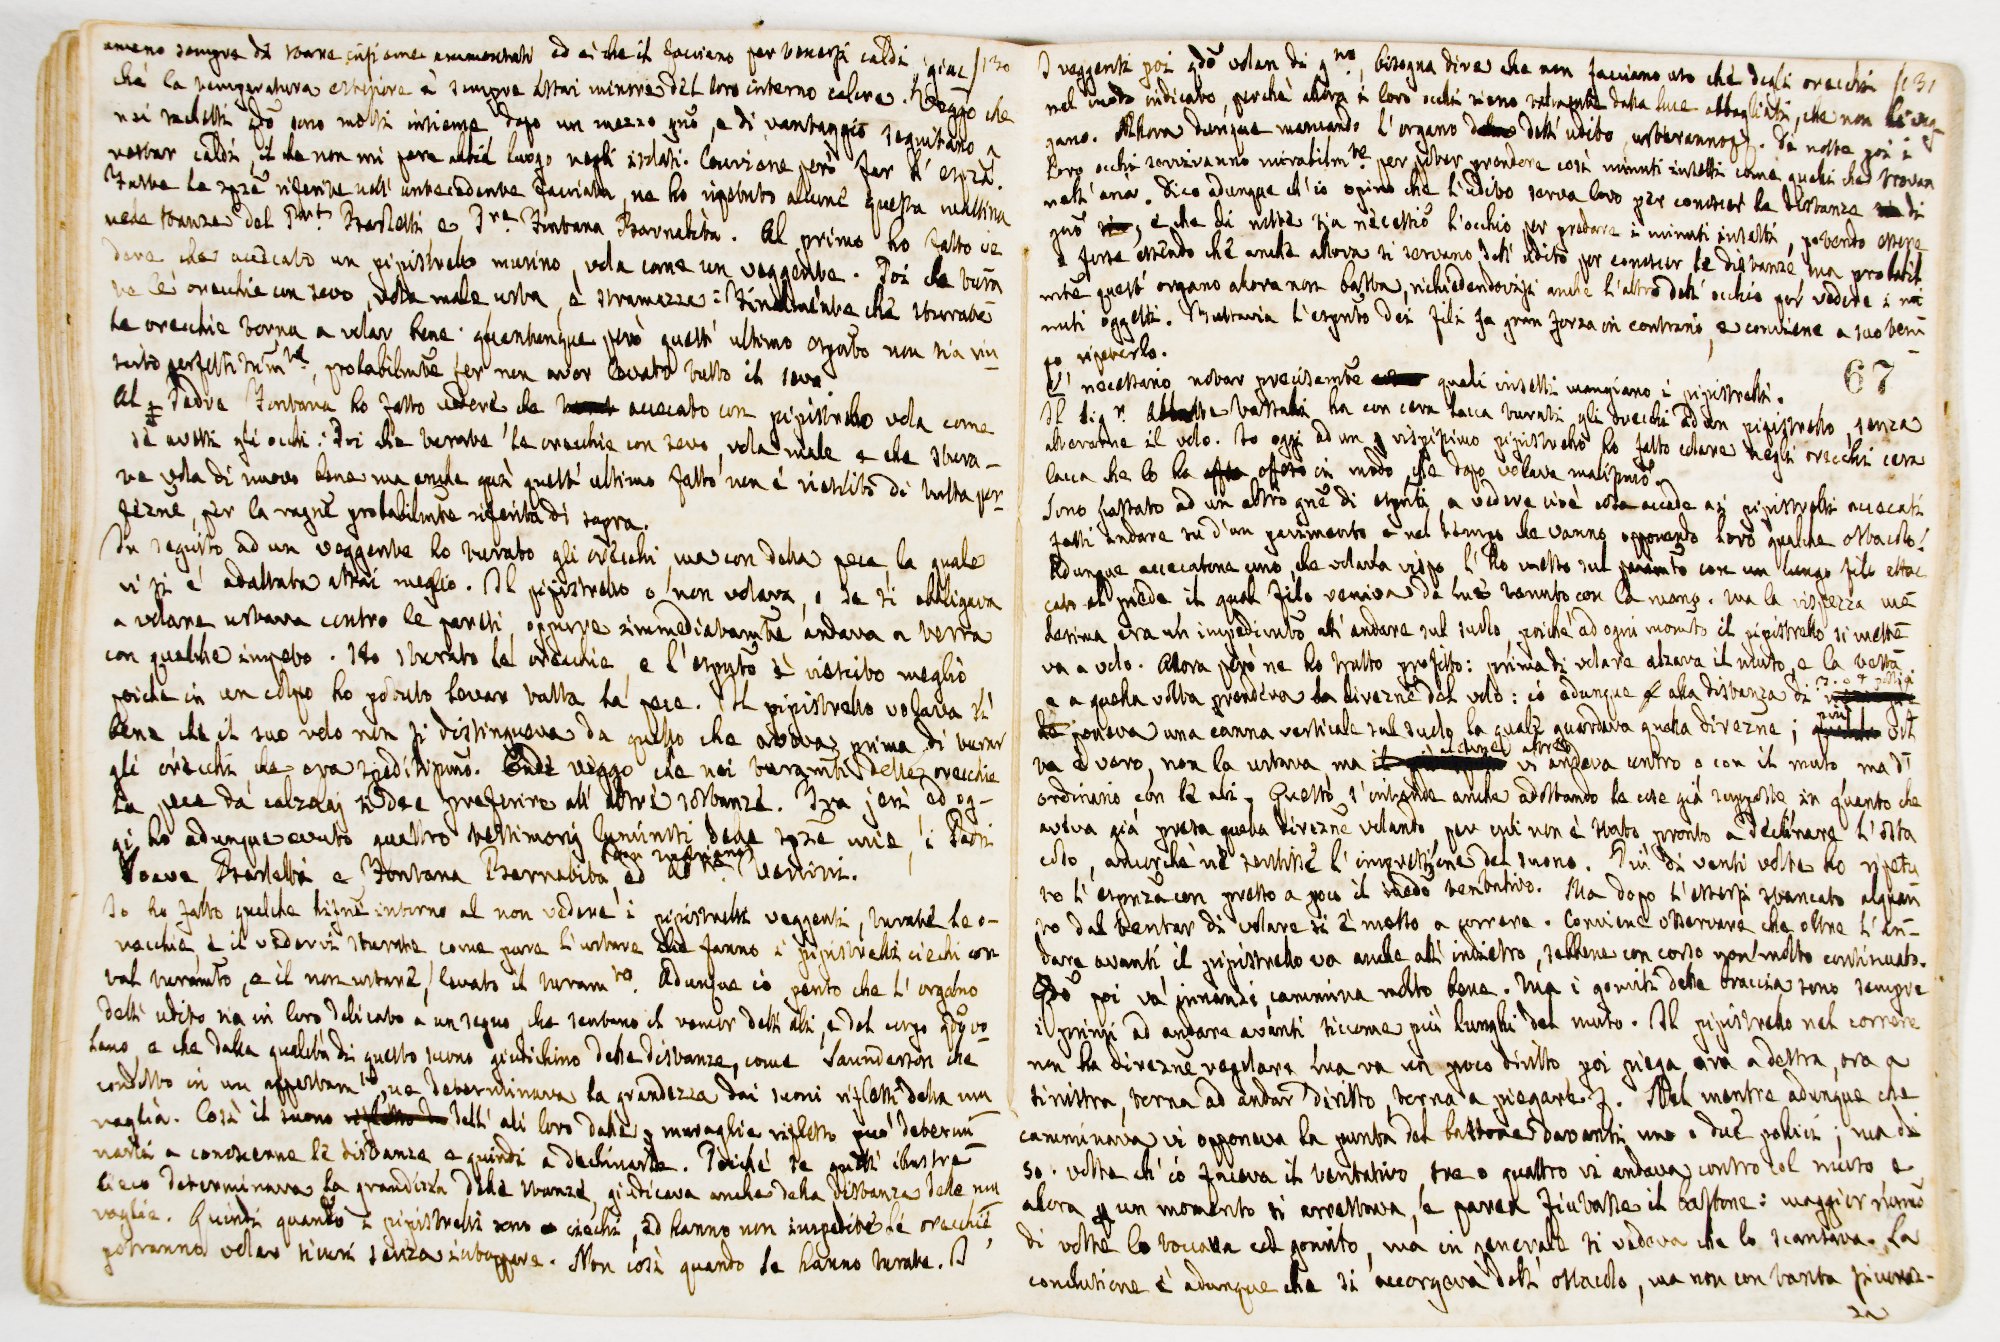 ameno sempre di stare insieme ammontati ed è che il facciano per tenersi caldi giac 130
chè la temperatura esteriore è sempre assai minore del loro interno calore. Veggo che
nei vasetti qdo sono molti insieme dopo un mezzo gno, e di vantaggio seguitano a
restar caldi, il che non mi pare abbia luogo negli isolati. Conviene però far l' esprza.
Tutte le sprze riferite nell' antecedente facciata, ne ho ripetuto alcune questa mattina
nelle stanze del Barletti e Pre. Fontana Barnabita. Al primo ho fatto ve
dere che acecato un pipistrello musino, vola come un veggente. Poi che tura
te le orecchie con sevo, vola male urta, e stramazza: Finalmente che sturate
le orecchie torna a volar bene: quantunque però quest' ultimo esprto non sia riu-
scito perfettissimte, probabilmte per non aver levato tutto il sevo
Al Padre Fontana ho fatto vedere che accecato con pipistrello vola come
se avesse gli occhi: Poi che turate le orecchie con sevo, vola male e che stura-
te vola di nuovo bene ma anche qui quest' ultimo fatto non è riescito di tutta per-
fezne, per la ragne probabilmte riferita di sopra.
In seguito ad un veggente ho turato gli orecchi, ma con della pece la quale
vi si è adattata assai meglio. Il pipistrello o non volava, o se si obbligava
a volare urtava contro le pareti, oppure immediatamte andava a terra
con qualche impeto. Ho sturato le orecchie, e l' esprto è riescito meglio
poichè in un colpo ho potuto levar tutta la pece. Il pipistrello volava sì
bene che il suo volo non si distingueva da quello che aveva prima di turar
gli orecchi, che era speditissimo. Onde veggo che nei turamti delle orecchie
la pece da' calzolaj si dee preferire all' altre sostanze. Fra jeri, ed og-
gi, ho adunque avuto quattro testimonj luminosi delle sprze mie, i Padri
Soave Barletti e Fontana Barnabita, ed
Io ho fatto qualche riflne intorno al non vedere i pipistrelli veggenti, turate le o-
recchie, e il vederci sturate come pure l' urtare che fanno i pipistrelli ciechi con
tal turamto, e il non urtare, levato il turamto. Adunque io penso che l' organo
dell' udito sia in loro delicato a un segno, che sentano il romor dell' ali, e del corpo qdo vo-
lano, e che dalla qualità di questo suono giudichino delle distanze, come Saunderson che
condotto in un appartamto, ne determinava la grandezza dai suoni riflessi della mu
raglia. Così il suono dell' ali loro dalle muraglie riflesso può determi-
narli a conoscerne le distanze e quindi a declinarle. Poichè se quell' illustre
cieco determinava la grandezza delle stanze, giudicava anche della distanza delle mu
raglie. Quindi quando i pipistrelli sono ciechi, ed hanno non impedite le orecchie,
potranno volar sicuri senza intoppare. Non così quando le hanno turate. I
I veggenti poi qdo volan di gno, bisogna dire che non facciano uso che degli orecchi 131
nel modo indicato, perchè allora i loro occhi sieno talmente dalla luce abbagliati, che non li veg-
gano. Allora dunque mancando l' organo dell' udito, urteranno. Di notte poi i
loro occhi serviranno mirabilmte per poter prendere così minuti insetti come quelli che trovan
nell' aria. Dico adunque ch' io opino che l' udito serva loro per conoscer le distanze di
gno, e che di notte sia necessio l' occhio per predare i minuti insetti, potendo essere
e forse essendo che anche allora si servano dell' udito per conoscer le distanze, ma probabil
mte quest' organo allora non basta, richiedendovisi anche l' altro dell' occhio per vedere i mi
nuti oggetti. Tuttavia l' esprto dei fili fa gran forza in contrario, e conviene a suo tem-
po ripeterlo.
67
E' necessario notar precisamte quali insetti mangiano i pipistrelli.
Il Sigr. Vassalli ha con cera lacca turati gli orecchi ad un pipistrello, senza
alterarne il volo. Io oggi ad un vispissimo pipistrello ho fatto colare negli orecchi cera
lacca che lo ha offeso in modo, che dopo volava malissimo.
Sono passato ad un altro gne di esprti, a vedere cioè cosa accade ai pipistrelli accecati
fatti andare su d' un pavimento e nel tempo che vanno opponendo loro qualche ostacolo.
Adunque accecatone uno, che volava vispo l' ho messo sul pavimto con un lungo filo attac
cato al piede il qual filo veniva da me tenuto con la mano. Ma la vispezza me
desima era un impedimto all' andare sul suolo, poichè ad ogni momto il pipistrello si mette
va a volo. Allora però ne ho tratto profitto: prima di volare alzava il muso, e la testa
e a quella volta prendeva la direzne del volo: io adunque alla distanza di 3. o 4 pollici
poneva una canna verticale sul suolo la quale guardava quella direzne; più vol
te è vero, non la urtava, ma alcune altre vi andava contro o con il muso ma d'
ordinario con le ali. Questo s' intende anche adottando le cose già supposte in quanto che
aveva già presa quella direzne volando, per cui non è stato pronto a declinare l' osta
colo, ancorchè ne sentisse l' impressione del suono. Più di venti volte ho ripetu
to l' esprza con presso a poco il tentativo. Ma dopo l' essersi stancato alquan
to dal tentar di volare si è messo a correre. Conviene osservare che oltre l' an-
dare avanti il pipistrello va anche all' indietro, sebbene con corso non molto continuato.
Qdo poi va innanzi, cammina molto bene. Ma i gomiti delle braccia sono sempre
i primi ad andare avanti siccome più lunghi del muso. Il pipistrello nel correre
non ha direzne regolare, ma va un poco diritto poi piega ora a destra, ora a
sinistra, torna ad andar diritto, torna a piegare. Nel mentre adunque che
camminava vi opponeva la punta del bastone davanti uno o due pollici; ma di
50. volte ch' io faceva il tentativo, tre o quattro vi andava contro col muso e
allora un momento si arrestava, e parea fiutasse il bastone: maggior numo
di volte lo toccava col gomito, ma in generale si vedeva che lo scantava. La
conclusione è adunque che si accorgeva dell' ostacolo, ma non con tanta sicurez-
za